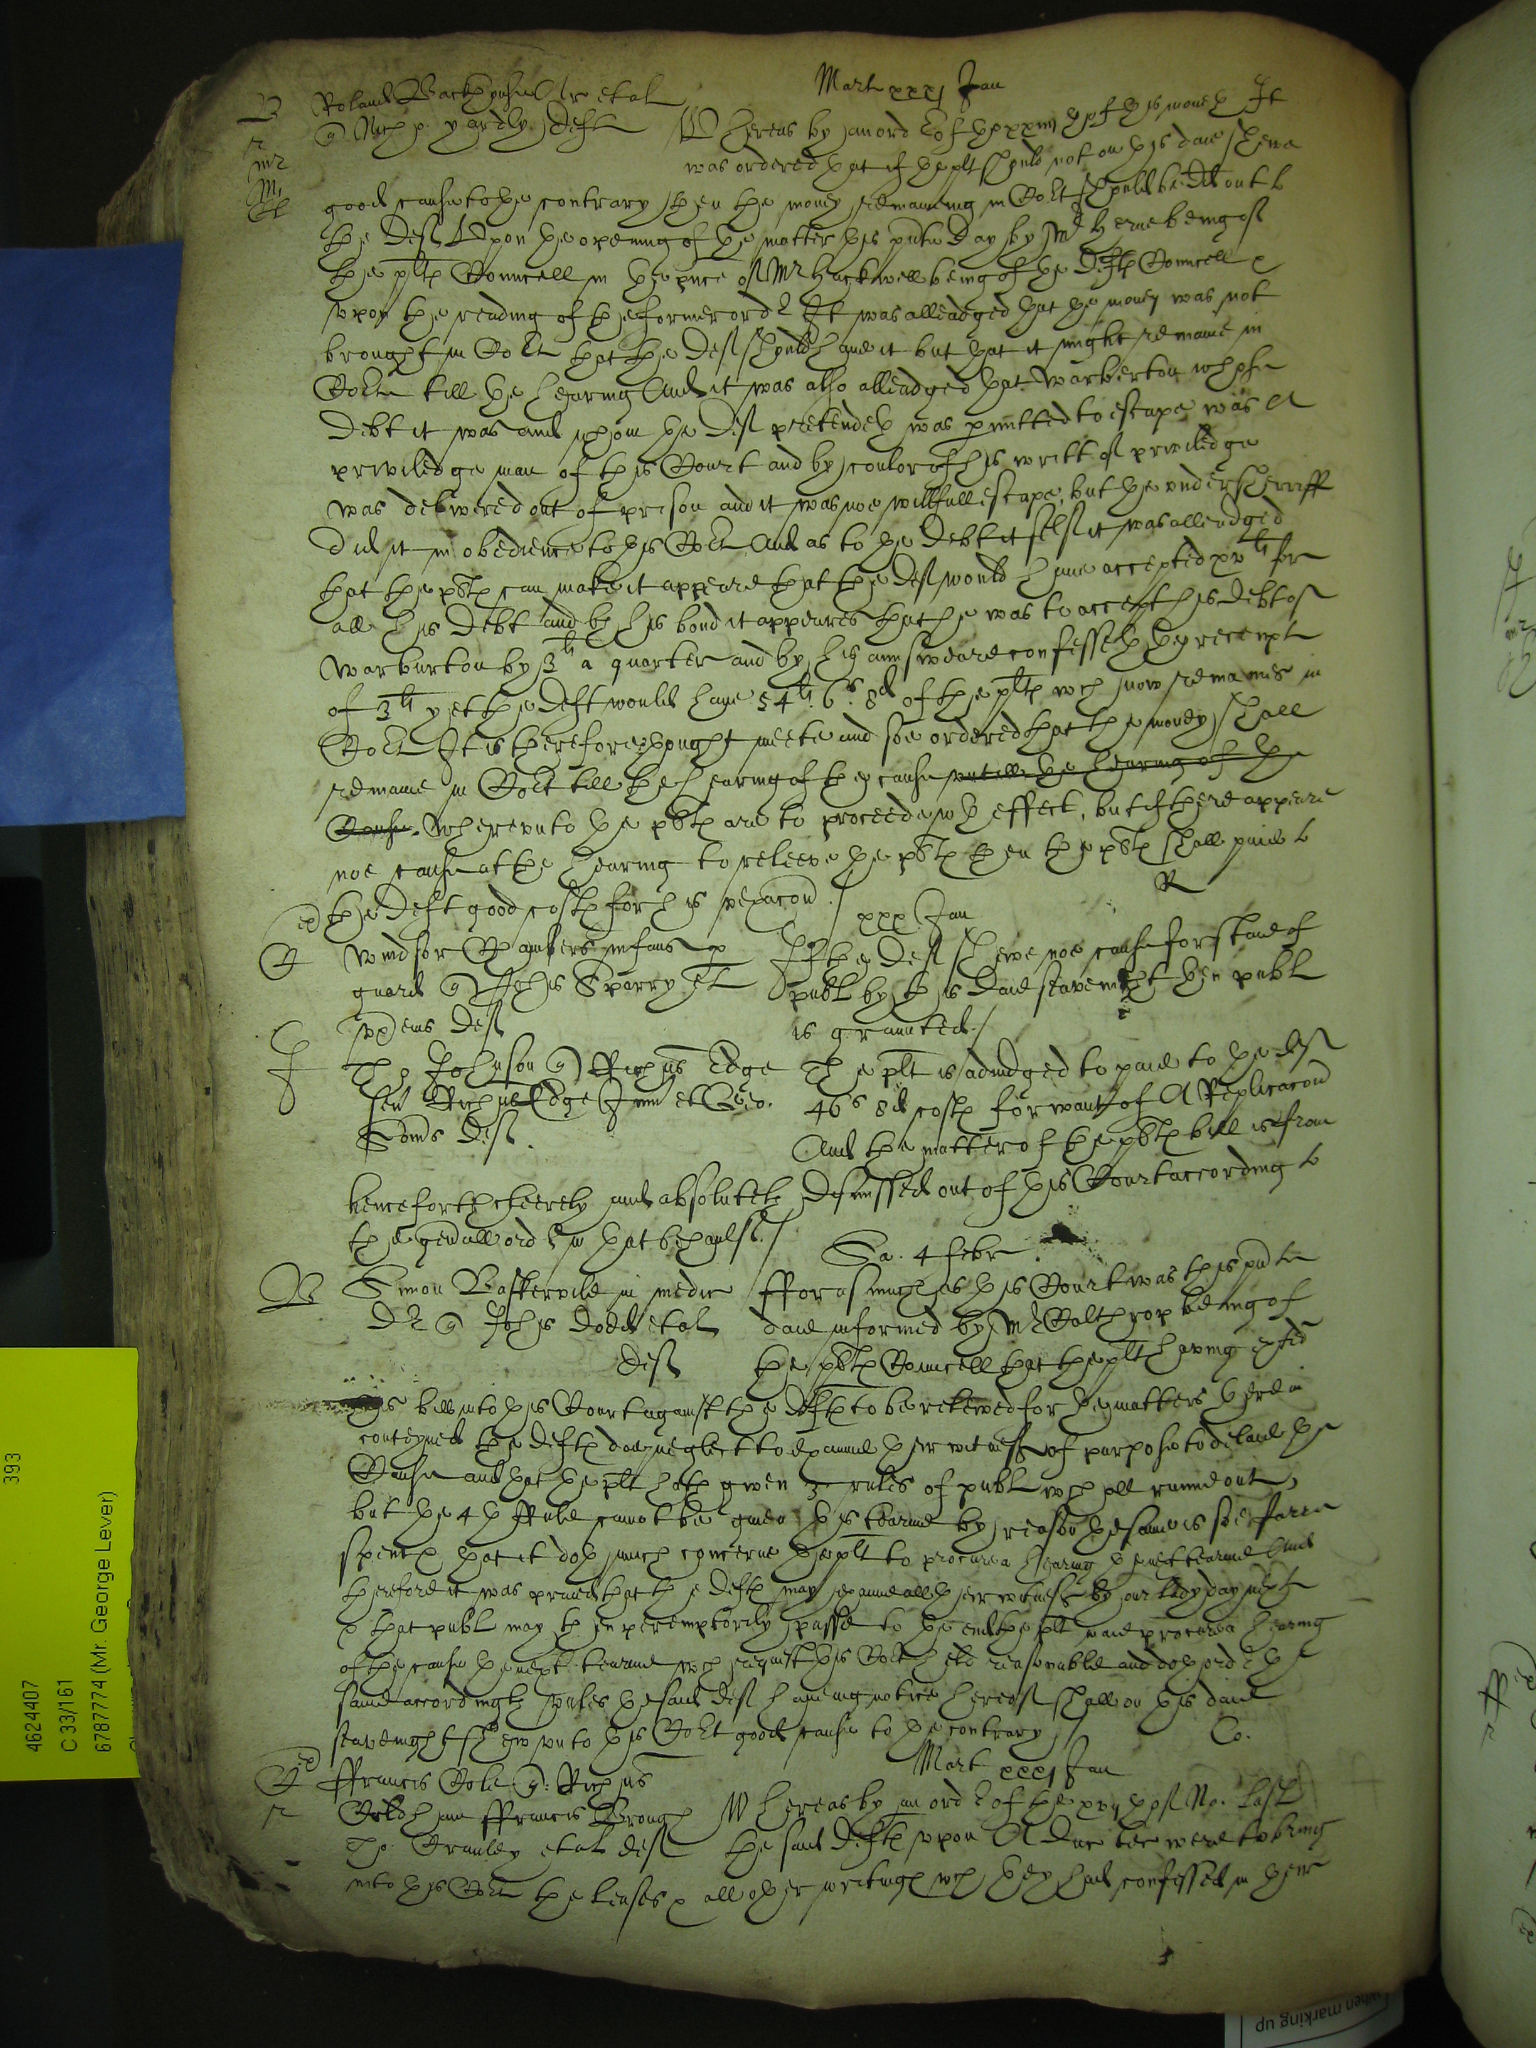 Mart xxxj Jan
B Roland Backhouse Ar et al
q Nich p. yardly Deft Whereas by an order of the xxiiijth of this moneth It
was ordered that if the plt should not on this daie shewe
good cause to the contrary then the money remaineing in Co:rt should be dd out to
the Deft Upon the opening of the matter this pnte day by Mr Herne being of
the plts Councell in the pnce of Mr Hackwell being of the Defts Councell &
upon the reading of the former order It was alleadged that the money was not
brought in Co:rt that the Deft should have it but that it might remaine in
Co:rte till the hearing And it was also alleadged that Warberton whose
debt it was and whom the Deft pretendeth was pmitted to escape was A
priviledge man of this Court and by coulor of his writt of priviledge
was delivered out of prison and it was noe willfull escape, but the undersherriff
did it in obedience to this Co:rt And as to the Debt it selfe it was alleadged
that the plts can make it appeare that the Deft would have accepted xvli for
all his Debt and by his bond it appeares that he was to accept his debt of
Warburton by 3li a quarter and by his answeare confesseth the receipt
of 3li yet the Deft would have 54li. 6s. 8d of the plts wch now remaines in
Co:rt It is therefore thought meete and soe ordered that the money shall
remaine in Co:rt till the hearing of the cause untill the hearing of the
Cause. Whereunto the plts are to proceede wth effect, but if there appeare
noe cause at the hearing to releeve the plts then the plts shall paie to
the Deft good costs for his vexacon / R
xxx Jan
Windsor Chambers infans p If the Deft shewe noe cause for staie of
guard q Johis Sparry et publ by this daie seavenight then publ
ux eius Deft is graunted /
Tho Johnson q Richus Edge The plt is adiudged to paie to the deft
sen Richus Edge Jun et Geo. 46s 8d costs for want of A Replicacon
Soms Deft. And the matter of the plts bill is from
henceforth cleerely and absolutely dismissed out of this Court according to
the genall order in that behaulf. /
Sa. 4 Febr
B Simon Baskervile in medic fforasmuch as this Court was this pnte
Dr q Johis Dodd et al daie informed by Mr Calthrop being of
Deft the plts Councell that the plt having exhited
his bill into this Court against the defts to be releived for the matters therein
conteyned the defts doe neglect to examine their witnesses of purpose to delaie the
Cause and that the plt hath given 3 rules of publ wch all runne out,
but the 4th Rule cannot be given this tearme by reason the same is soe farre
spent, that it doth much concerne the plt to procure a hearing the next tearme And
therefore it was praied that the defts may examine all their witnesses by our lady day next
& that publ may then peremptorily passe to the end the plt maie procure a hearing
of the cause the next tearme wch request this Co:rt held reasonable and doth order the
same accordingly unles the said deft having notice hereof shall on this daie
seavenight shew unto this Co:rt good cause to the contrary / Co.
Mart xxxj Jan
ffrancis Cole q: Richus
ffrancis Brough Whereas by an order of the xvijth of No. last
Tho. Cranley et al deft the said defts upon A Duc tec were to bring
into this Co:rt the leases & all other writings wch they had confessed in their
393
4624407
C 33/161
6787774 (Mr. George Lever)
when marking up